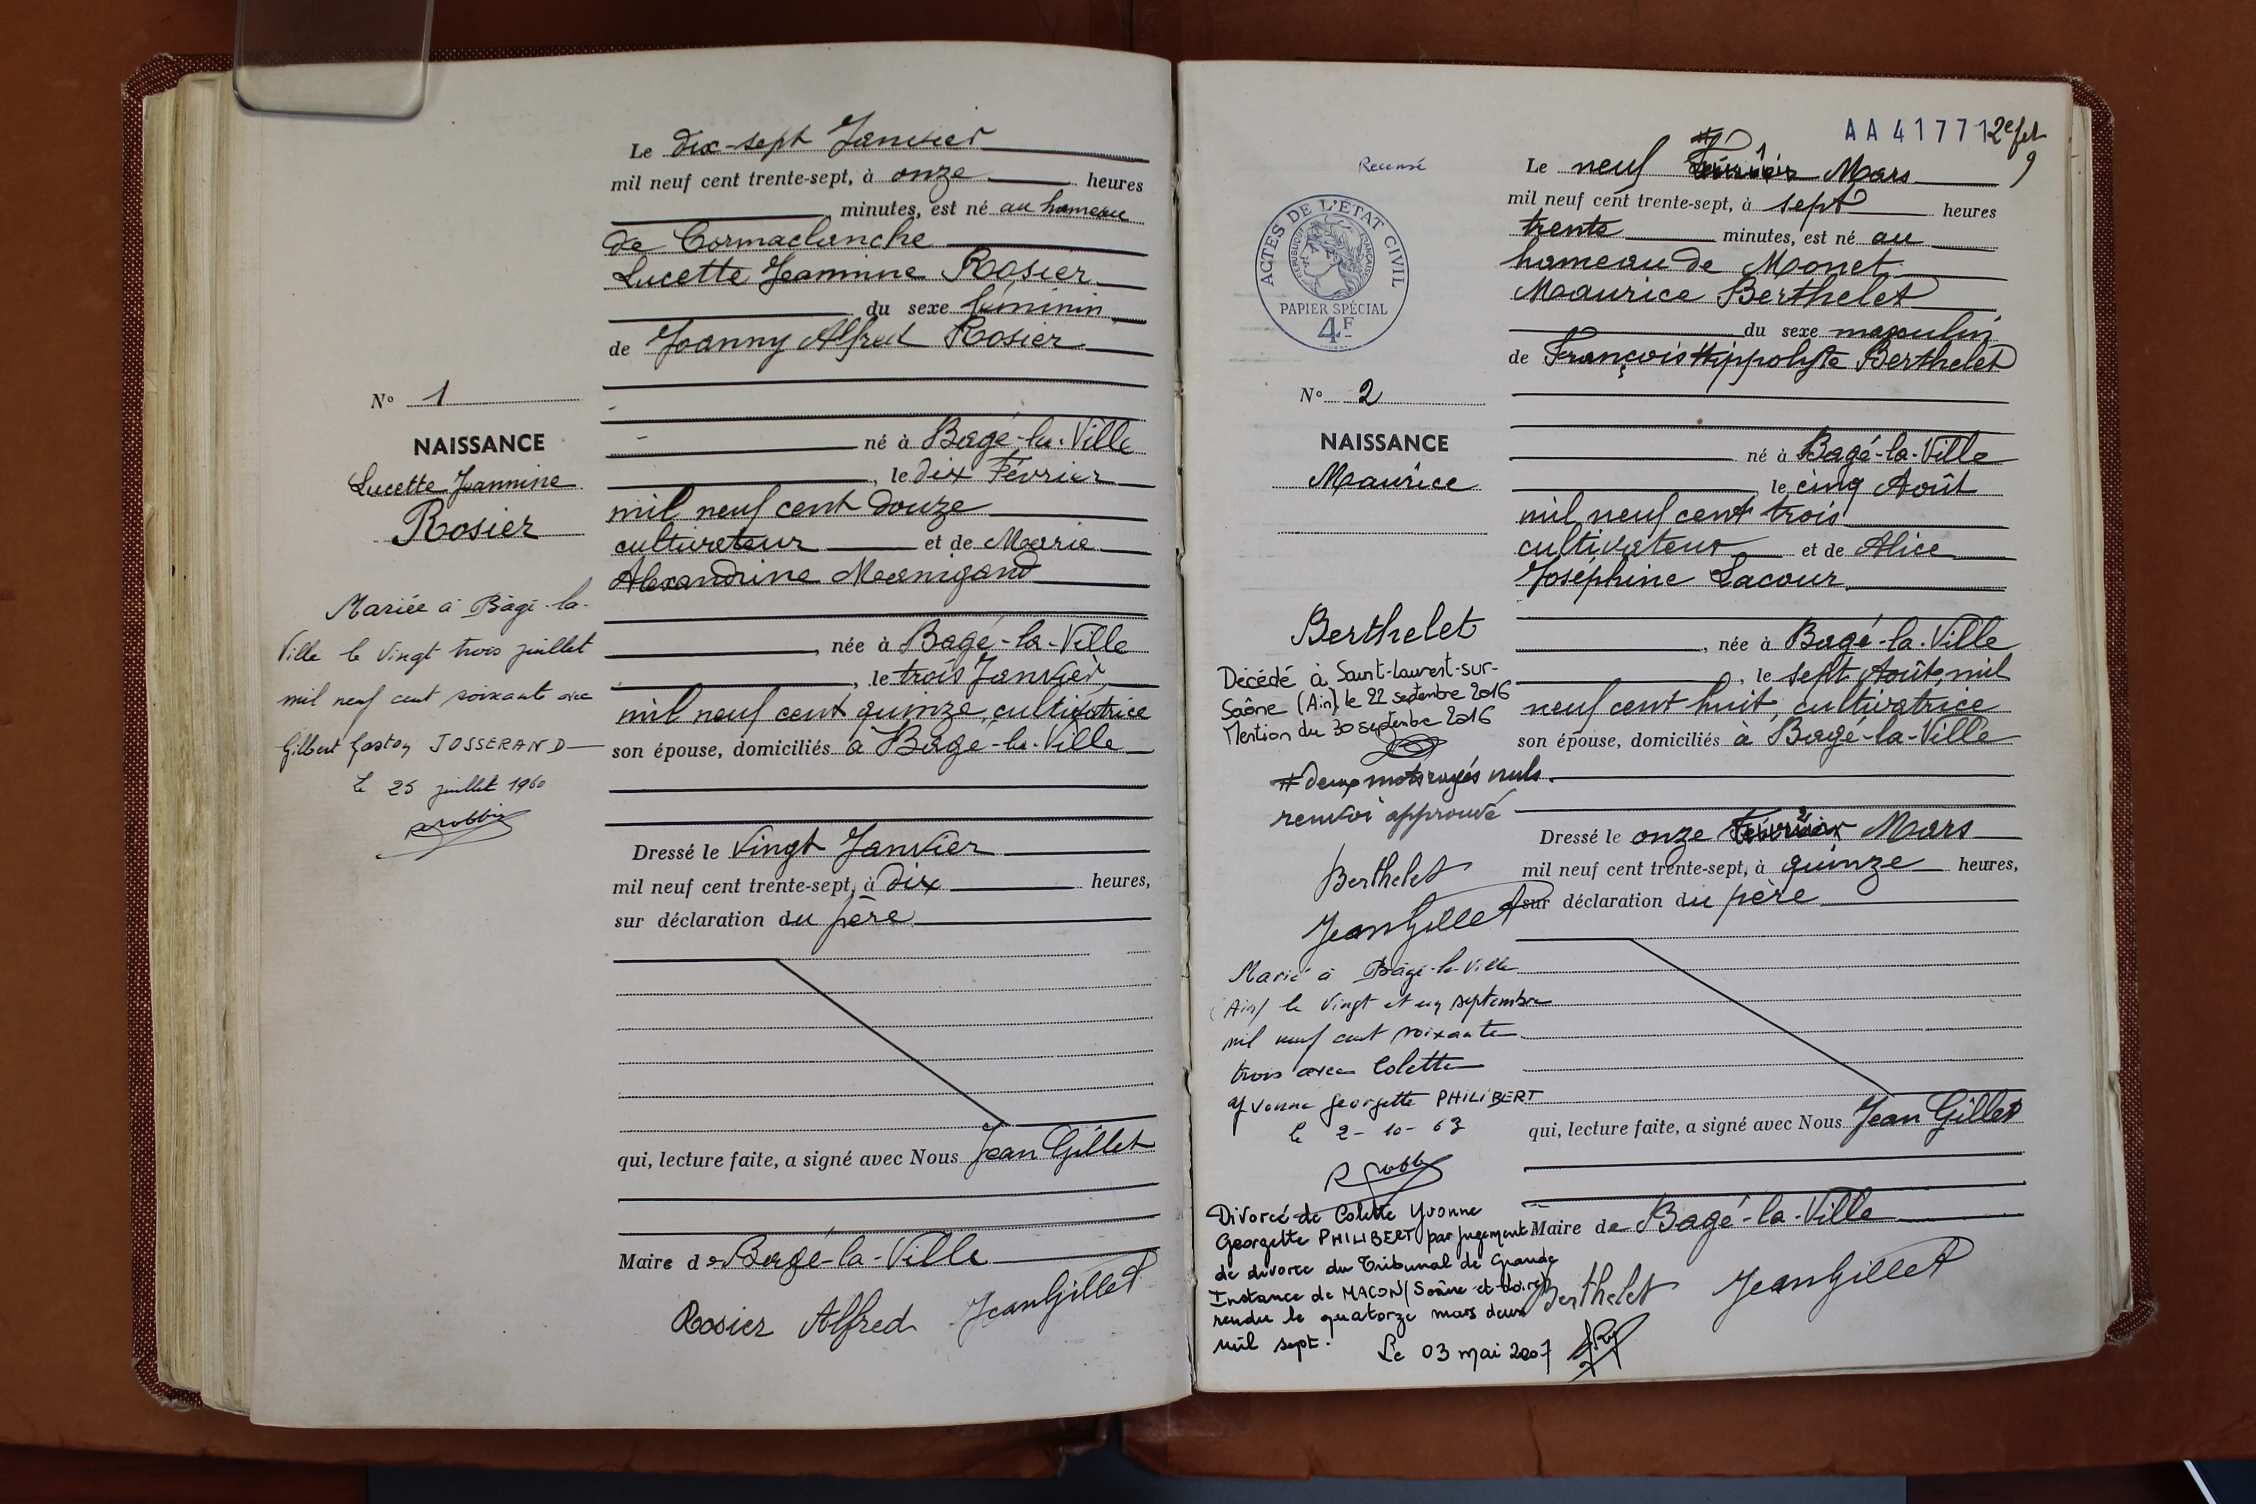 Le dix-sept Janvier
mil neuf cent trente-sept, à onze heures
minutes, est né au hameau
de Cormaclanche
Lucette Jeannine Rosier
du sexe féminin
de Joanny Alfred Rosier
né à Bagé-la-Ville
, le dix Février
mil neuf cent douze
cultivateur et de Marie
Alexandrine Manigand
, née à Bagé-la-Ville
, le trois Janvier
mil neuf cent quinze, cultivatrice
son épouse, domiciliés à Bagé-la-Ville
Dressé le vingt Janvier
mil neuf cent trente-sept, à dix heures,
sur déclaration du père
qui, lecture faite, a signé avec Nous Jean Gillet
Maire de Bagé-la-Ville
Rosier Alfred Jean Gillet
No 1
NAISSANCE
Lucette Jeannine
Rosier
Mariée à Bâgé-la-
Ville le vingt trois juillet
mil neuf cent soixante avec
Gilbert Gaston JOSSERAND
Le 25 juillet 1960
AA 41771 2e fet
9
Recensé
ACTES DE L'ETAT CIVIL
REPUBLIQUE FRANÇAISE
PAPIER SPÉCIAL
4F
Le neuf # Février 1 Mars
mil neuf cent trente-sept, à sept heures
trente minutes, est né au
hameau de Monet
Maurice Berthelet
du sexe masculin
de François Hippolyte Berthelet
né à Bagé-la-Ville
le cinq Août
mil neuf cent trois
cultivateur et de Alice
Joséphine Lacour
, née à Bagé-la-Ville
, le sept Août mil
neuf cent huit, cultivatrice
son épouse, domiciliés à Bagé-la-Ville
Dressé le onze Février 2 Mars
mil neuf cent trente-sept, à quinze heures,
sur déclaration du père
qui, lecture faite, a signé avec Nous Jean Gillet
Maire de Bagé-la-Ville
Berthelet Jean Gillet
No 2
NAISSANCE
Maurice
Berthelet
Décédé à Saint-Laurent-sur-
Saône (Ain) le 22 septembre 2016
Mention du 30 septembre 2016
# deux mots rayés nuls
renvoi approuvé
Berthelet
Jean Gillet
Marié à Bâgé-la-Ville
(Ain) le vingt et un septembre
mil neuf cent soixante
trois avec Colette
Yvonne Georgette PHILIBERT
le 2-10-63
Divorcé de Colette Yvonne
Georgette PHILIBERT par jugement
de divorce du Tribunal de Grande
Instance de MACON (Saône-et-Loire)
rendu le quatorze mars deux
mil sept.
Le 03 mai 2007